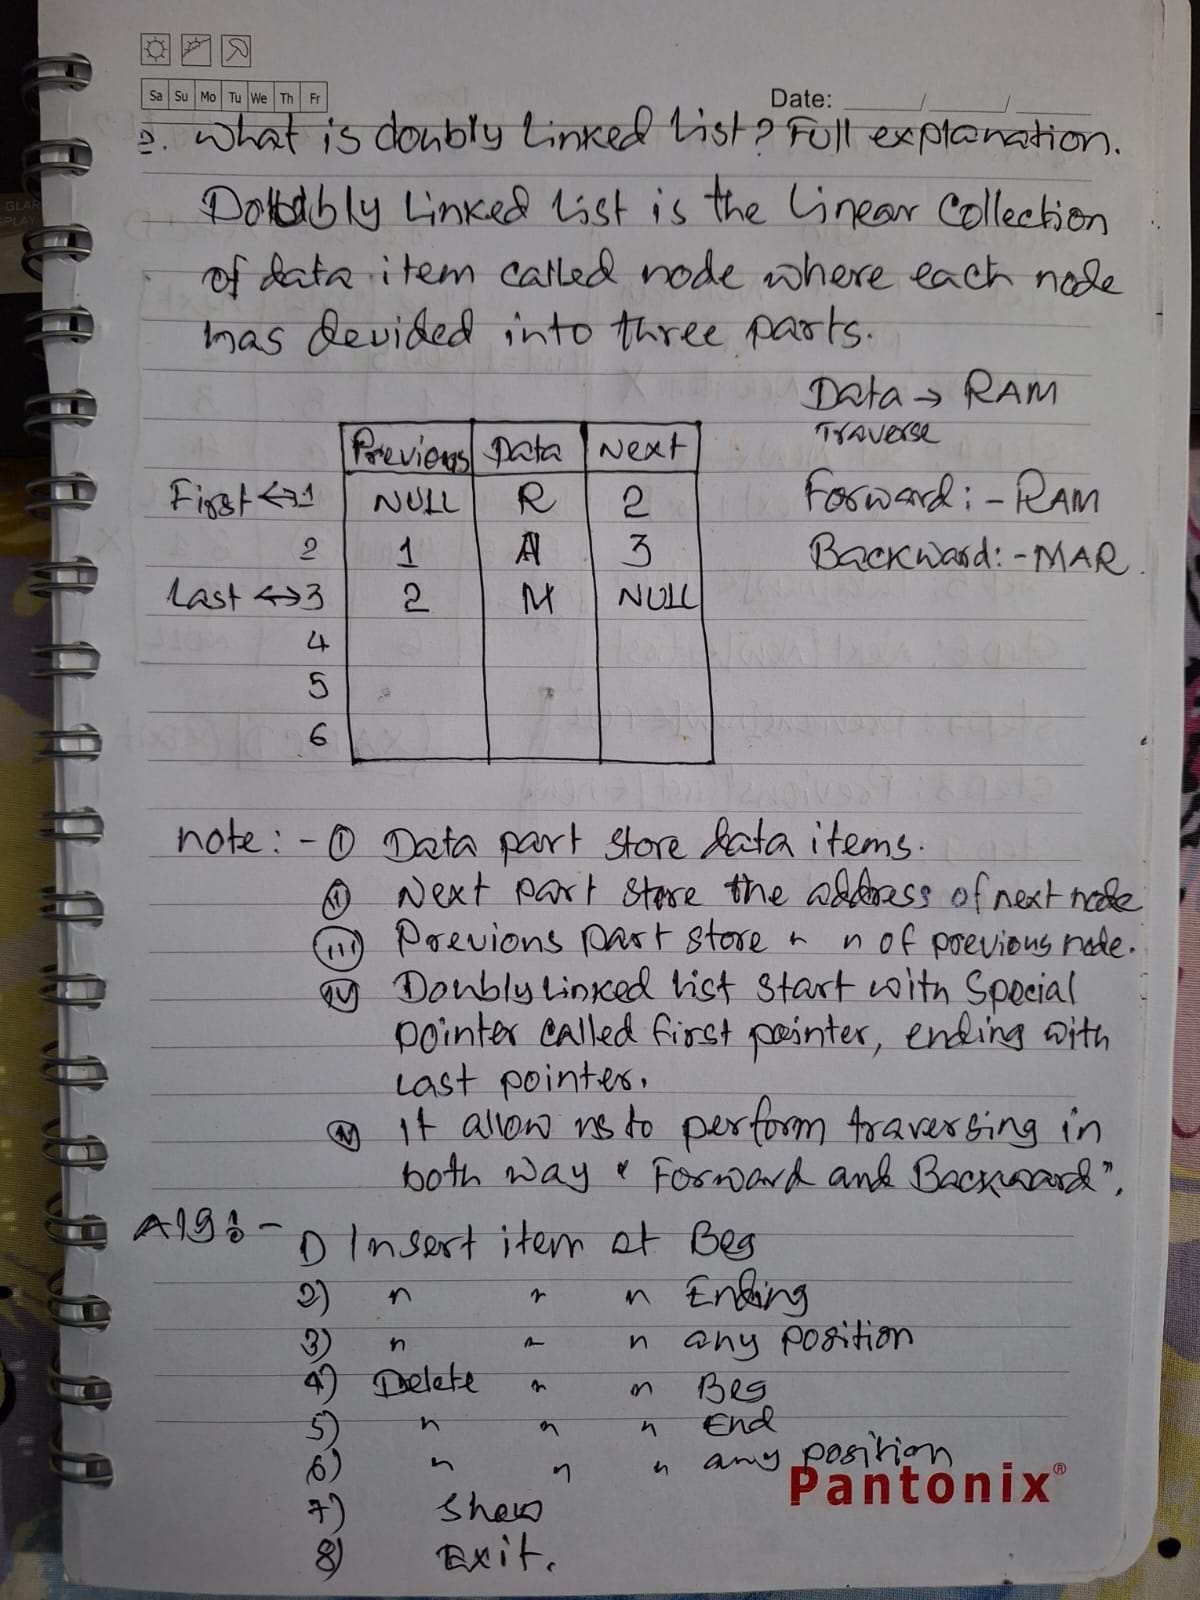 Sa Su Mo Tu We Th Fr
Date: ___/___/___
2. What is doubly Linked List? Full explanation.
Doubly Linked List is the Linear Collection
of data item called node where each node
has devided into three parts.
Data → RAM
Traverse
Forward: - RAM
Backward: - MAR.
Previous Data Next
First ↔ 1 NULL R 2
2 1 A 3
Last ↔ 3 2 M NULL
4
5
6
note: - (i) Data part store data items.
(ii) Next part store the address of next node
(iii) Previous part store " " of previous node.
(iv) Doubly Linked list start with Special
pointer called first pointer, ending with
Last pointer.
(v) it allow us to perform traversing in
both way "Forward and Backward".
Alg: - 1) Insert item at Beg
2) " " " Ending
3) " " " any position
4) Delete " " Beg
5) " " " End
6) " " " any position
7) Show
8) Exit.
Pantonix®